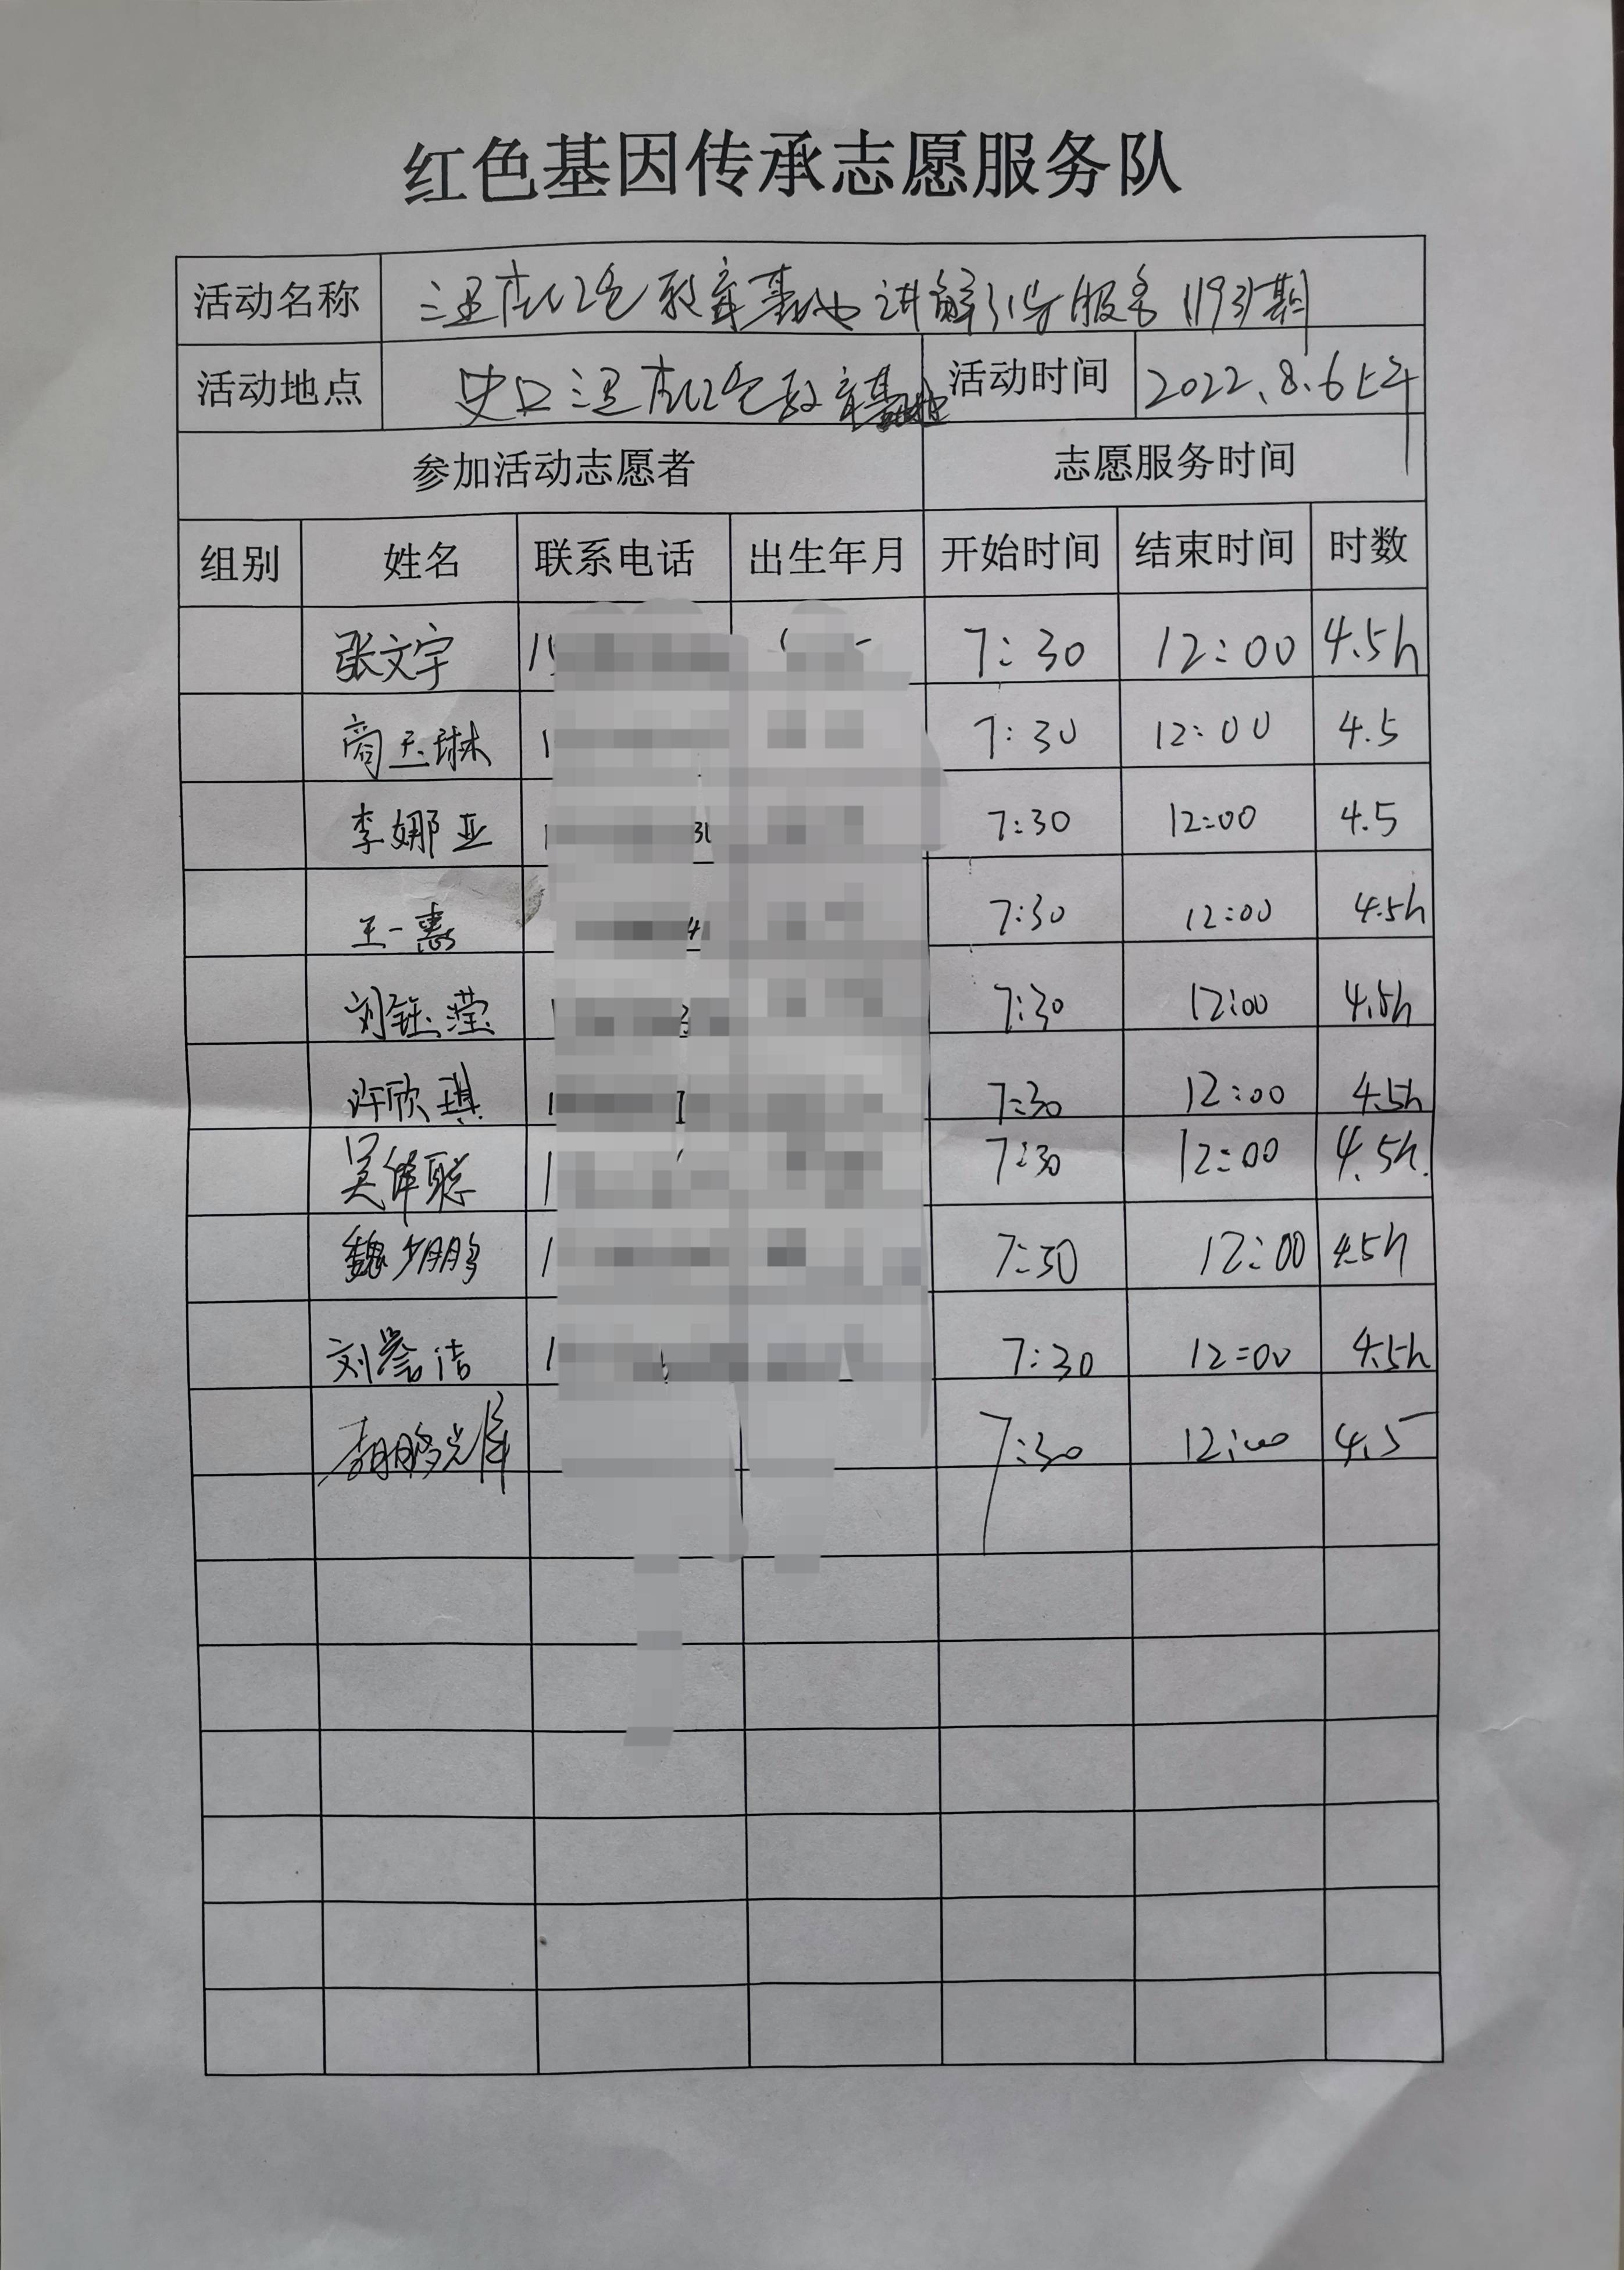 红色基因传承志愿服务队
活动名称 三里庄红色教育基地讲解引导服务1193期
活动地点 史口三里庄红色教育基地 活动时间 2022.8.6上午
参加活动志愿者 志愿服务时间
组别 姓名 联系电话 出生年月 开始时间 结束时间 时数
张文宇 7:30 12:00 4.5h
商玉琳 7:30 12:00 4.5
李娜亚 7:30 12:00 4.5
王一惠 7:30 12:00 4.5h
刘钰滢 7:30 12:00 4.5h
许欣琪 7:30 12:00 4.5h
吴聪 7:30 12:00 4.5h.
魏少鹏 7:30 12:00 4.5h
刘誉洁 7:30 12:00 4.5h
7:30 12:00 4.5